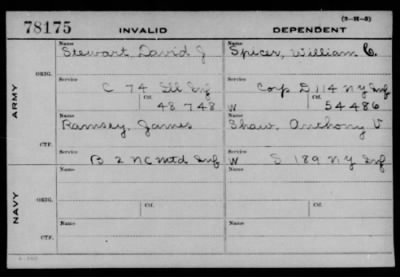 (3-H-3)
78175 INVALID DEPENDENT
ARMY
ORIG.
Name Stewart, David J Name Spicer, William C.
Service C 74 Ill Inf Service Corp D 114 N Y Inf
Ctf. 48748 W Ctf. 54486
CTF.
Name Ramsey, James Name Shaw, Anthony V
Service B 2 N C Mtd Inf Service W S 189 N Y Inf
NAVY
ORIG.
Name Name
Service Ctf. Service Ctf.
CTF.
Name Name
Service Service